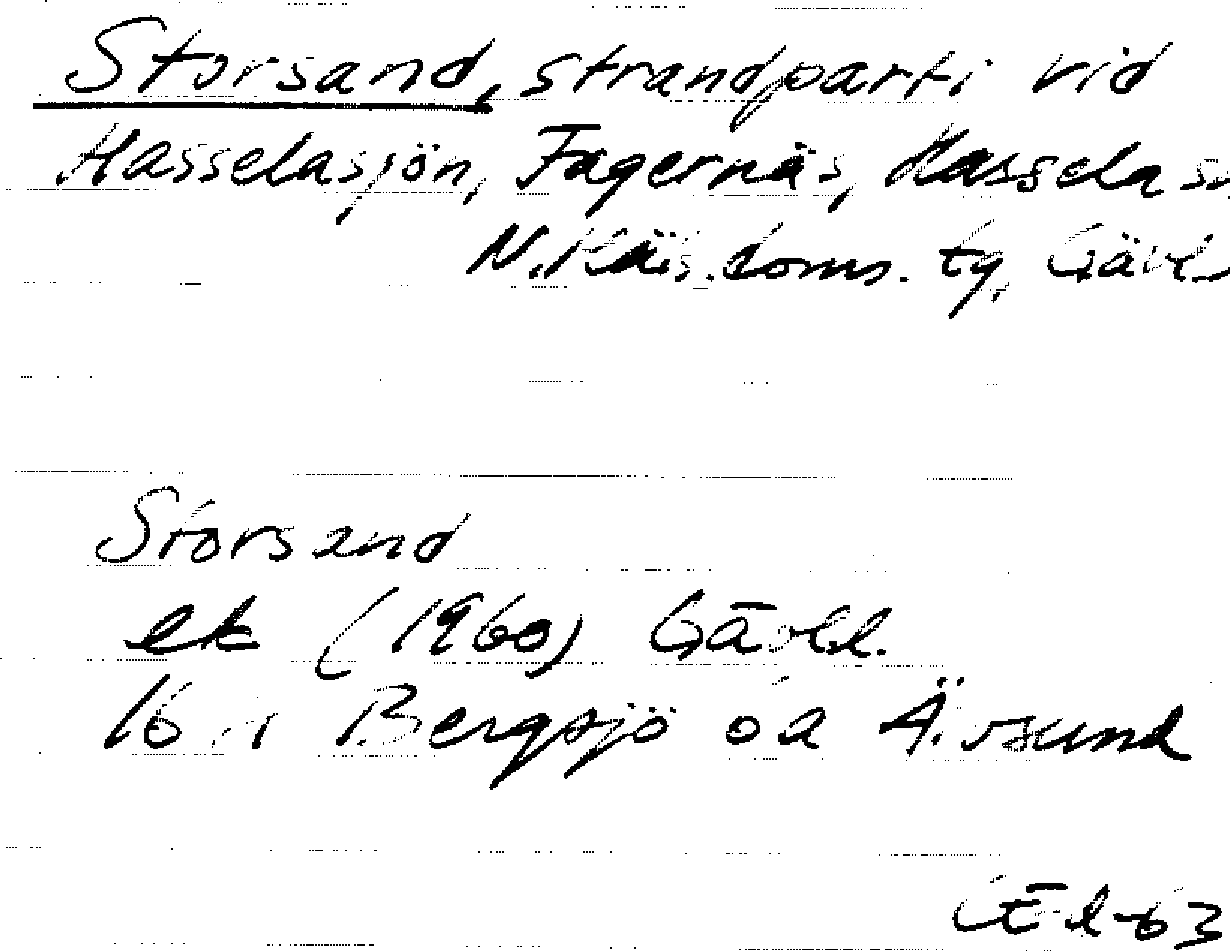 Storsand, strandparti vid
Hasselasjön, Fagernäs, Hassela sn
N. Häls. doms. tg, Gävl.
Storsand
ek (1960) Gävl.
16 Bergsjö o a